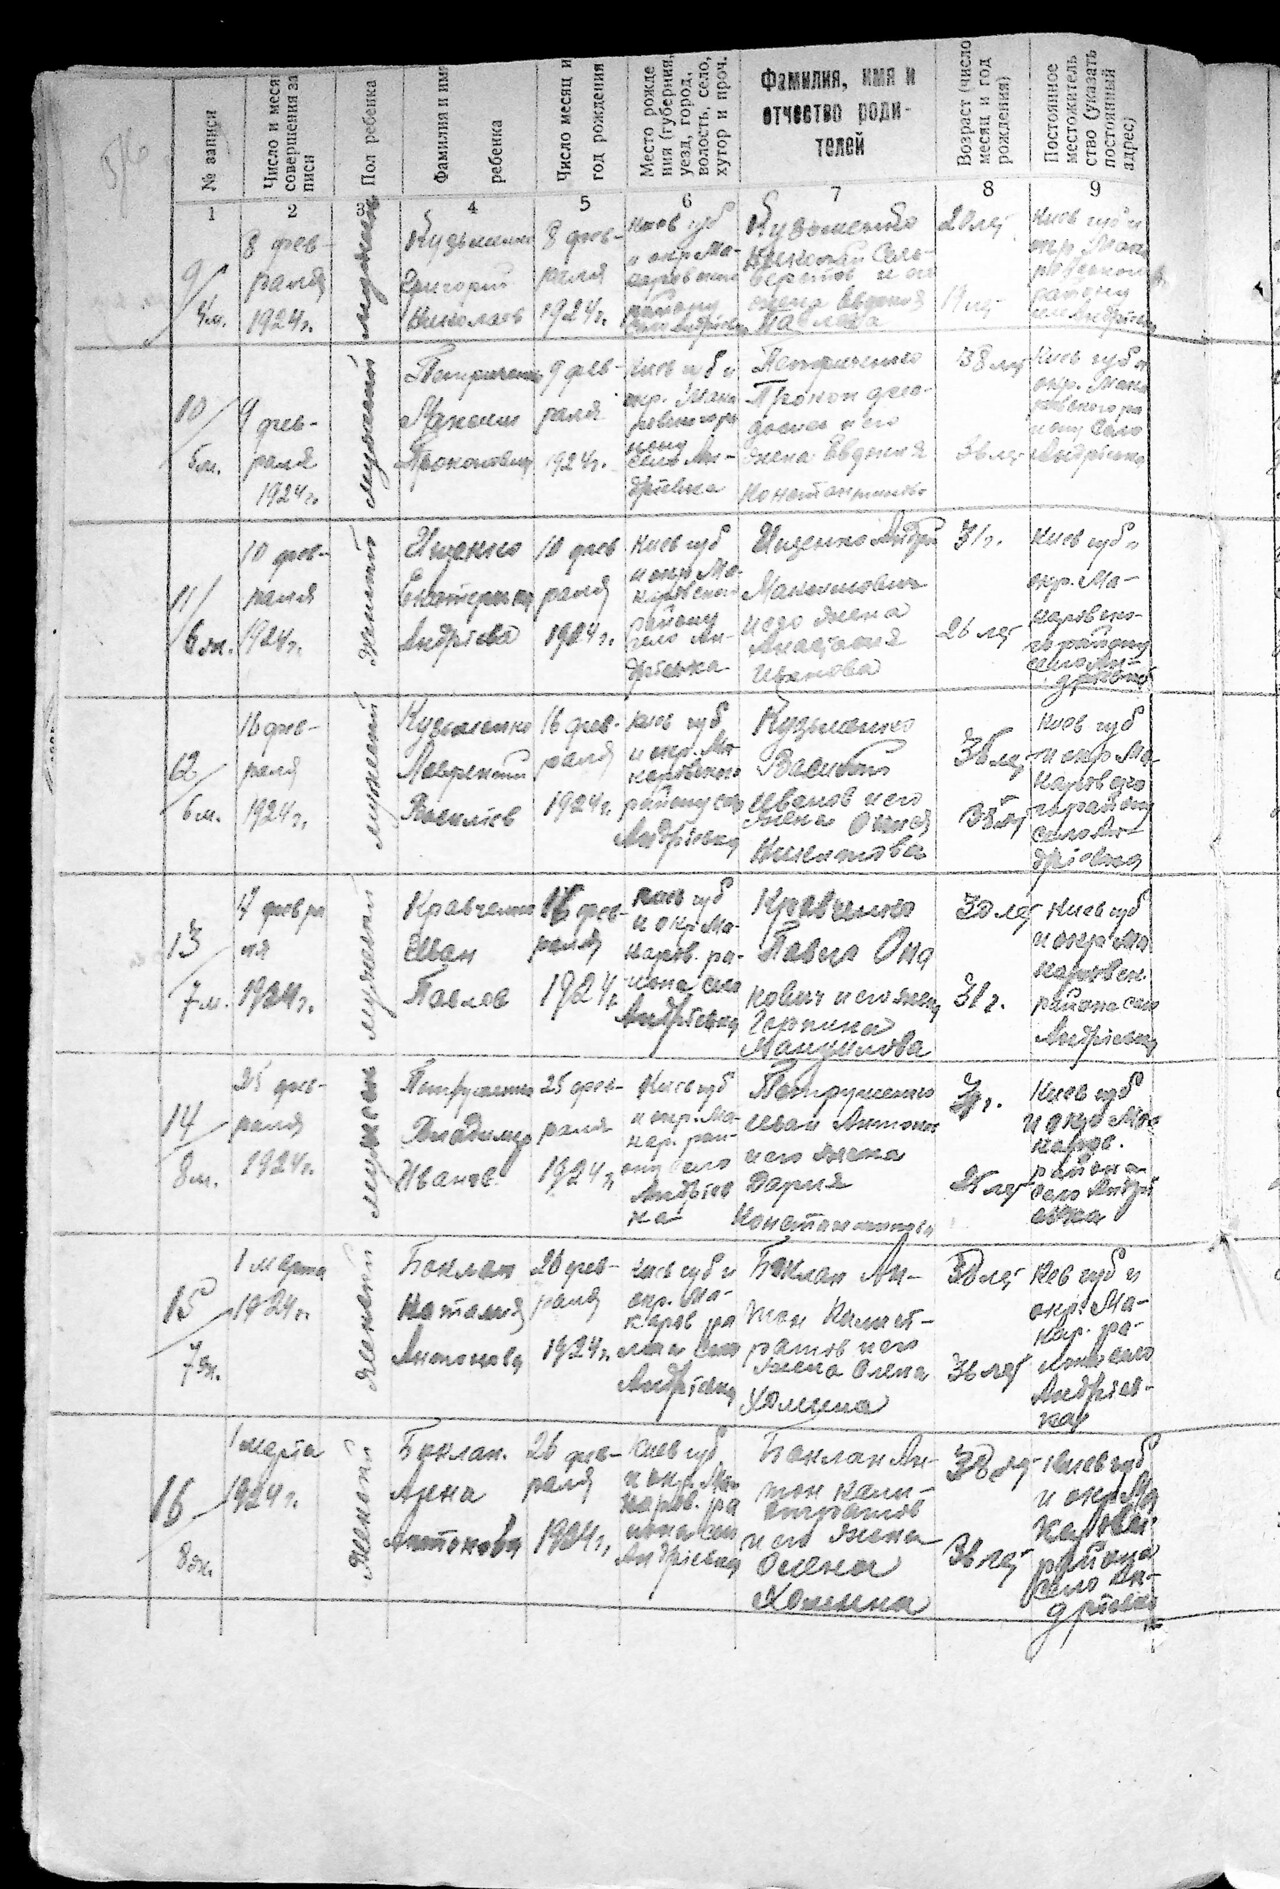 516
№ записи
Число и меся
совершения за
писи
Пол ребенка
Фамилия и имя
ребенка
Число месяц и
год рождения
Место рожде
ния (губерния,
уезд, город,
волость, село,
хутор и проч.
Фамилия, имя и
отчество роди-
телей
Возраст (число
месяц и год
рождения)
Постоянное
местожитель
ство (указать
постоянный
адрес)
1 2 3 4 5 6 7 8 9
9/
4м.
8 фев-
раля
1924г.
мужеск
Кузьменко
Григорий
Николаев
8 фев-
раля
1924г.
Киев губ
и окр Ма-
каровского
району
село Андріевка
Кузьменко
Николай
и его
жена Евдокия
Павлова
20 лет
19 лет
Киев губ и
окр. Мака
ровского
району
село Андріевка
10/
5м.
9 фев-
раля
1924г.
мужеский
Петриченко
Максим
Прокопович
9 фев-
раля
1924г.
Киев губ и
окр. Мака
ровского ра
йону
село Ан-
дріевка
Петриченко
Прокоп Фео-
досиев и его
жена Евдокия
Константинова
38 лет
36 лет
Киев губ и
окр. Мака
ровского ра
йону село
Андріевка
11/
6ж.
10 фев-
раля
1924г.
женский
Ищенко
Екатерина
Андріева
10 фев
раля
1924г.
Киев губ
и окр Ма-
каровского
району
село Ан-
дріевка
Ищенко Андрій
Максимович
и его жена
Анастасия
Иванова
31г.
26 лет
Киев губ и
окр. Ма-
каровско-
го району
село Ан-
дріевка
12/
6м.
16 фев-
раля
1924г.
мужеский
Кузьменко
Лаврентий
Василіев
16 фев-
раля
1924г.
Киев губ
и окр. Ма-
каровского
району село
Андріевка
Кузьменко
Василий
Иванов и его
жена
Никитова
36 лет
Киев губ
и окр Ма-
каровско
го району
село Ан-
дріевка
13/
7м.
17 февра
ля
1924г.
мужеский
Кравченко
Иван
Павлов
16 фев-
раля
1924г.
Киев губ
и окр Ма-
каров. ра-
йона село
Андріевка
Кравченко
Павел
и его жена
Горпина
Мануилова
30 лет
31г.
Киев губ
и окр Ма
каровск
района село
Андріевка
14/
8м.
25 фев-
раля
1924г.
мужеск
Петрушенко
Владимир
Иванов
25 фев-
раля
1924г.
Киев губ
и окр. Ма-
кар. рай-
ону село
Андріев
ка
Петрушенко
Иван Антонов
и его жена
Дария
Константинова
25 лет
Киев губ
и окр Ма-
каров.
района
село Андрі
евка
15/
7ж.
1 марта
1924г.
женский
Баклан
Наталия
Антонова
26 фев-
раля
1924г.
Киев губ и
окр. Ма-
каров ра
йона село
Андріевка
Баклан Ан-
тон Калист-
ратов и его
жена Олена
Хомина
38 лет
36 лет
Киев губ и
окр. Ма-
кар. ра-
йона село
Андріев-
ка
16/
8ж.
1 марта
1924г.
женский
Баклан.
Анна
Антонова
26 фев-
раля
1924г.
Киев губ
и окр. Ма
каров. ра
йона село
Андріевка
Баклан Ан-
тон Кали-
стратов
и его жена
Олена
Хомина
38 лет
36 лет
Киев губ
и окр Ма
каровск
района
село Ан-
дріевка